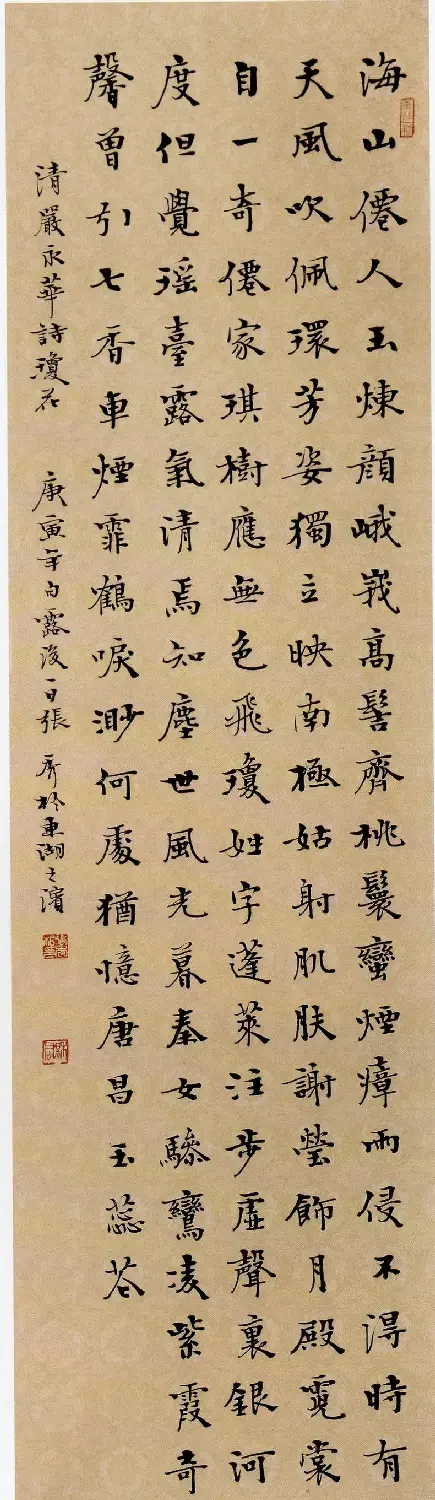 海山僊人玉煉顔峨峩高髻齊桃鬟蠻煙瘴雨侵不得時有
天風吹佩環芳姿獨立映南極姑射肌膚謝瑩飾月殿霓裳
自一奇僊家琪樹應無色飛瓊姓字蓬萊注步虛聲裏銀河
度但覺瑶臺露氣清焉知塵世風光暮秦女驂鸞凌紫霞奇
馨曾引七香車煙霏鶴唳渺何處猶憶唐昌玉蕊花
清嚴永華詩瓊花 庚寅年白露後一日張 於東湖之濱